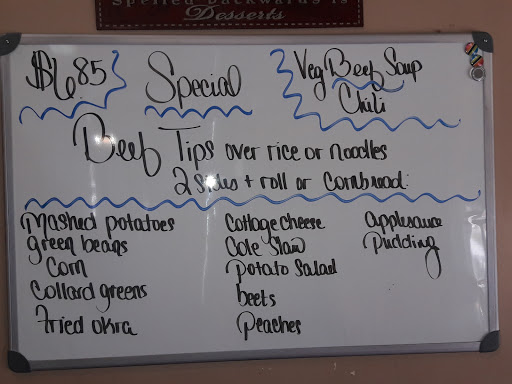 Spelled backwards is
Desserts
$6.85
Special
Veg Beef Soup
Chili
Beef Tips over rice or noodles
2 sides + roll or Cornbread:
Mashed potatoes
green beans
Corn
Collard greens
Fried okra
Cottage cheese
Cole Slaw
Potato Salad
beets
Peaches
applesauce
pudding